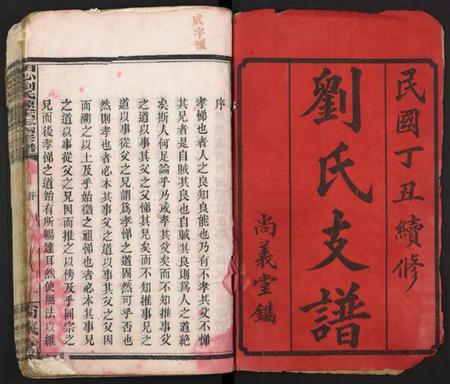 民國丁丑續修
劉氏支譜
尚義堂鐫
咸字號
序
孝悌也者人之良知良能也乃有不孝其父不悌
其兄者是自賊其良也自賊其良則爲人之道絶
矣斯人何足論乎乃或孝其父矣而不知推事父
之道以事其父之父悌其兄矣而不知推事兄之
道以事從父之兄謂爲孝悌之道固然可乎否也
然則孝也者必本其事父之道以事其父之父因
而溯之以上及乎始徵之祖悌也者必本其事兄
之道以事從父之兄因而推之以傍及乎同宗之
兄而後孝悌之道始有所暢達耳然使無法以維
序